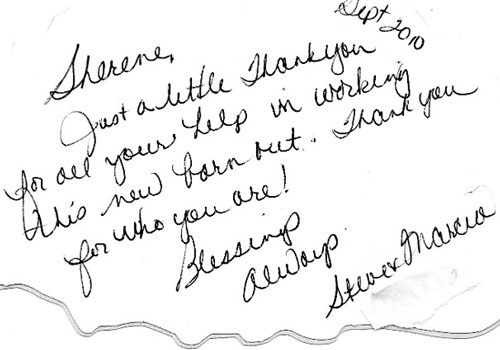 Sept 2010
Sherene,
Just a little Thank you
for all your help in working
this new barn out.. Thank you
for who you are!
Blessings
always
Steve & Marcia